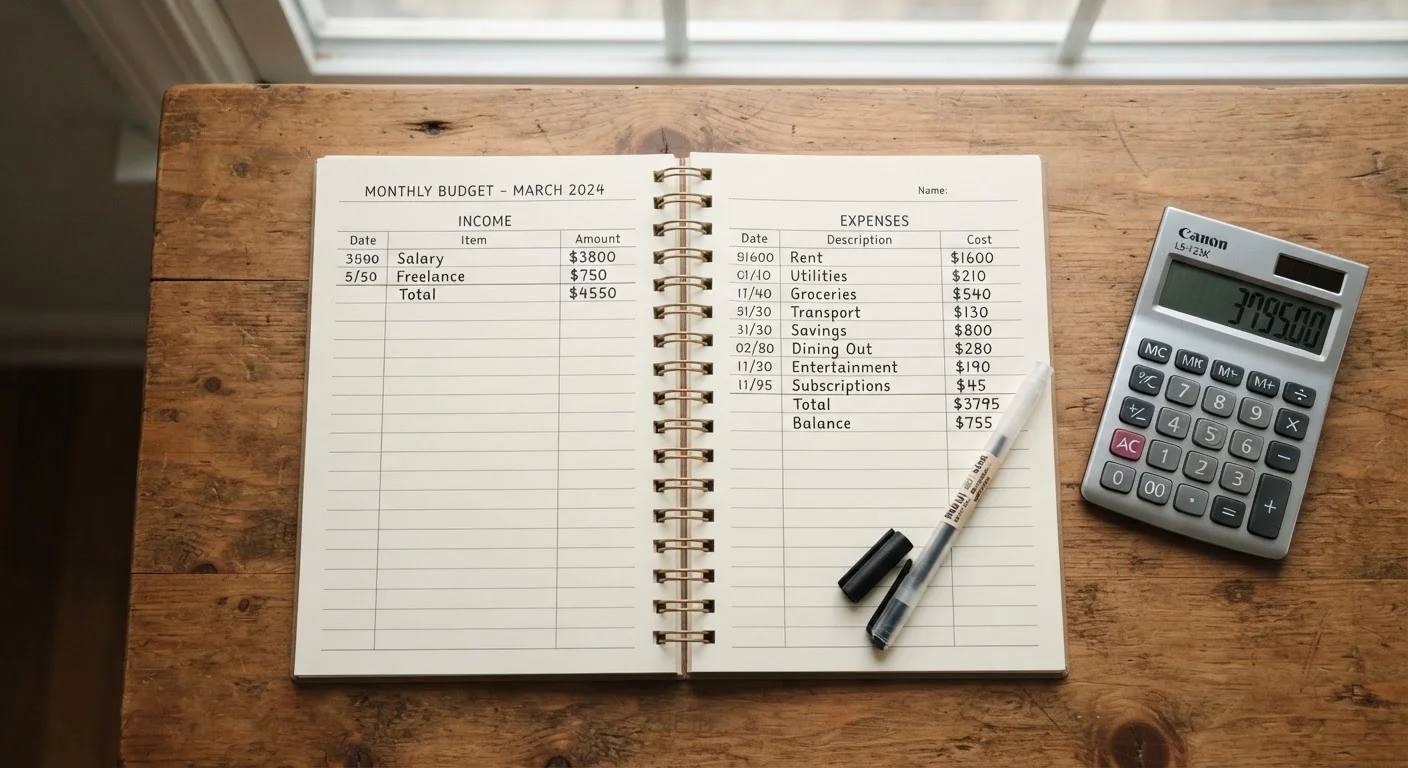 MONTHLY BUDGET – MARCH 2024
INCOME
Date Item Amount
3890 Salary $3800
5/50 Freelance $750
Total $4550
Name:
EXPENSES
Date Description Cost
91600 Rent $1600
01/10 Utilities $210
17/40 Groceries $540
51/30 Transport $130
31/30 Savings $800
02/80 Dining Out $280
11/30 Entertainment $190
11/95 Subscriptions $45
Total $3795
Balance $755
Canon
3795.00
MC M- M+ ÷
7 8 9 ×
+/- 4 5 6 −
AC 1 2 3
0 00 . = +